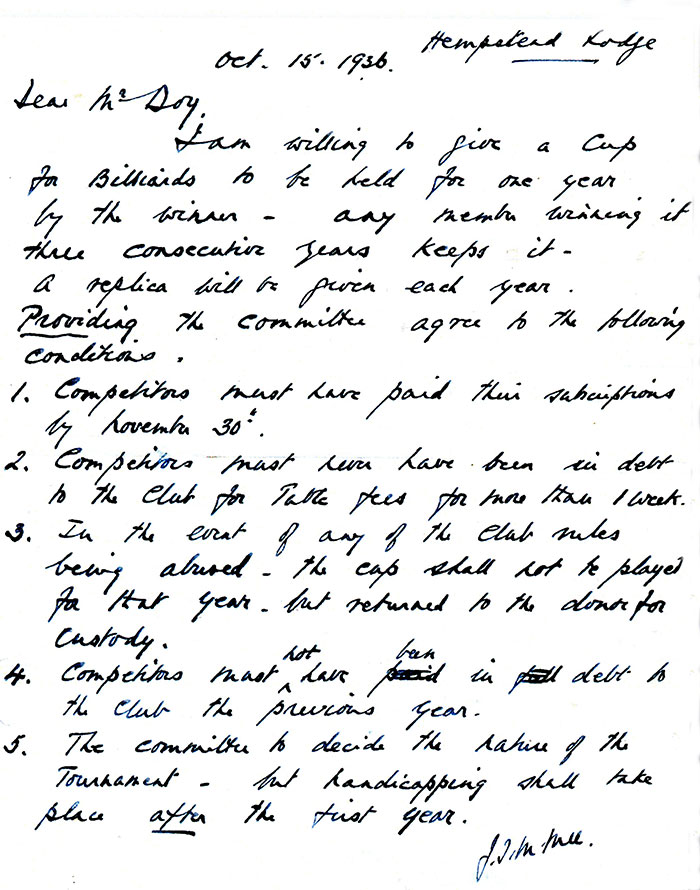 Hempstead Lodge
Oct. 15. 1936.
Dear Mr Doy.
I am willing to give a Cup
for Billiards to be held for one year
by the winner - any member winning it
three consecutive years keeps it -
A replica will be given each year.
Providing the committee agree to the following
conditions.
1. Competitors must have paid their subscriptions
by November 30th.
2. Competitors must never have been in debt
to the Club for Table fees for more than 1 week.
3. In the event of any of the Club rules
being abused - the cup shall not be played
for that year - but returned to the donor for
Custody.
4. Competitors must not have been in debt to
the Club the previous year.
5. The committee to decide the nature of the
Tournament - but handicapping shall take
place after the first year.